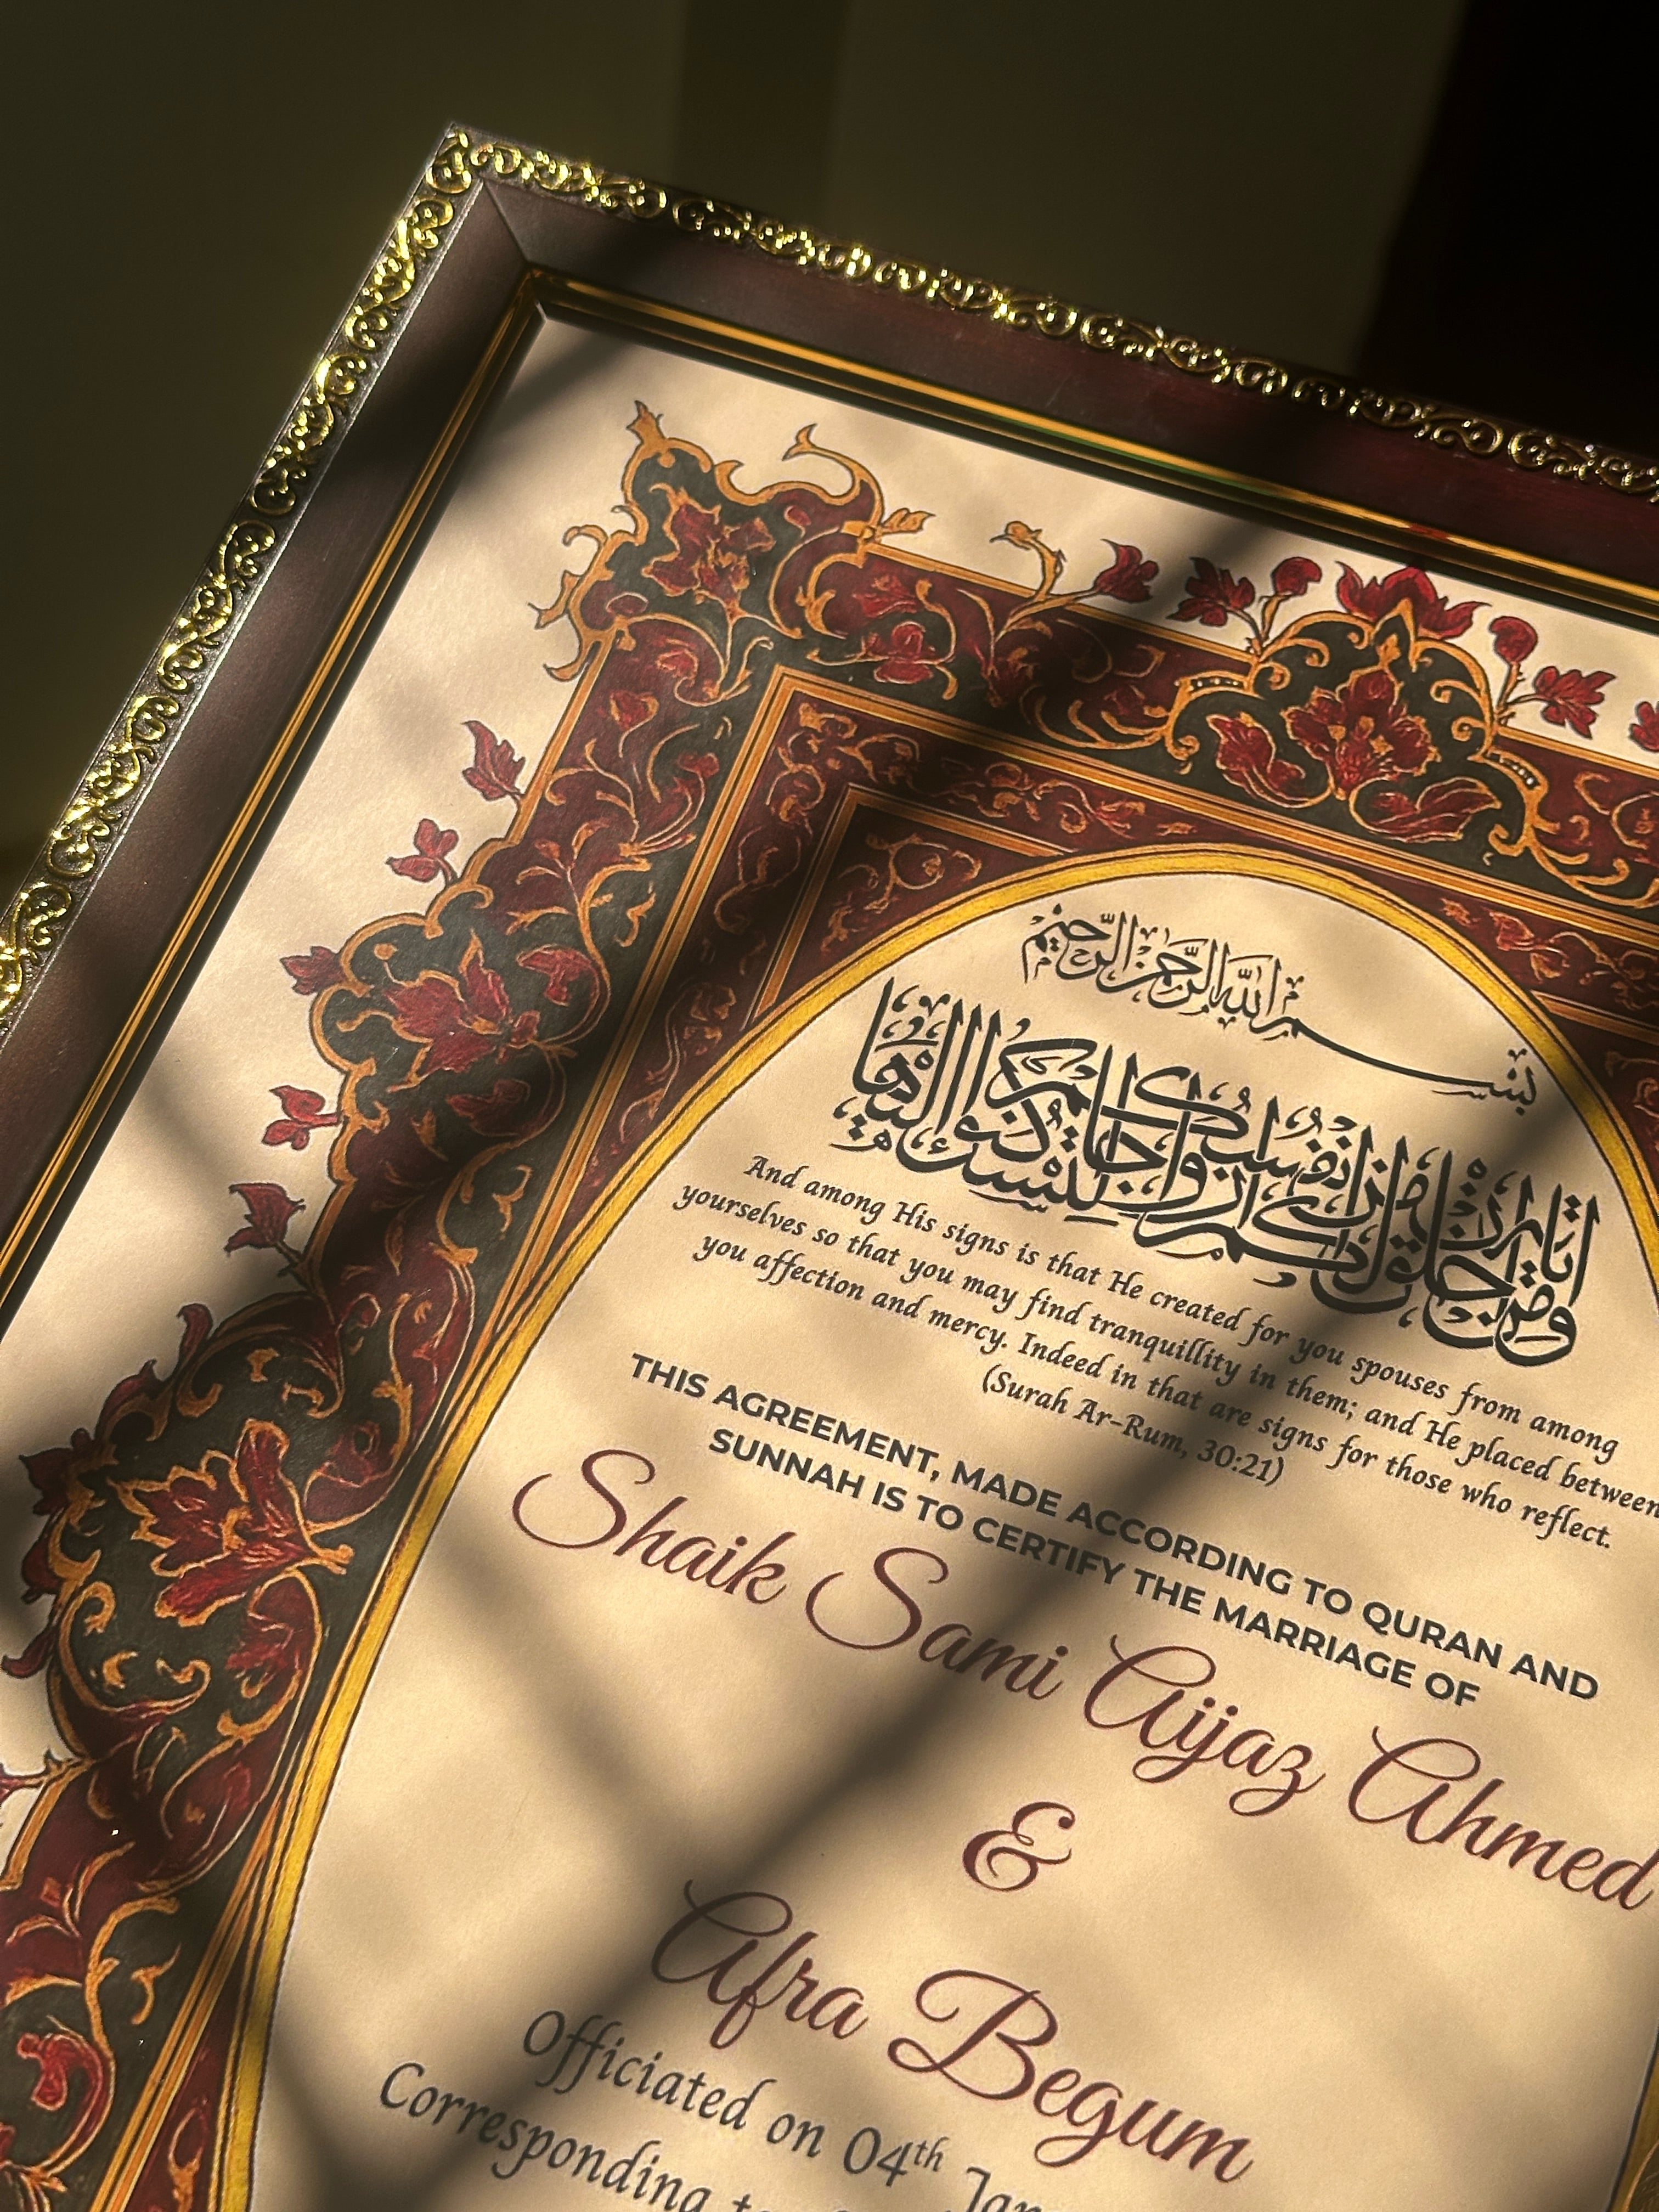 بسم الله الرحمن الرحيم
ومن آياته أن خلق لكم من أنفسكم أزواجا لتسكنوا إليها
And among His signs is that He created for you spouses from among
yourselves so that you may find tranquillity in them; and He placed between
you affection and mercy. Indeed in that are signs for those who reflect.
(Surah Ar-Rum, 30:21)
THIS AGREEMENT, MADE ACCORDING TO QURAN AND
SUNNAH IS TO CERTIFY THE MARRIAGE OF
Shaik Sami Aijaz Ahmed
&
Afra Begum
Officiated on 04th
Corresponding